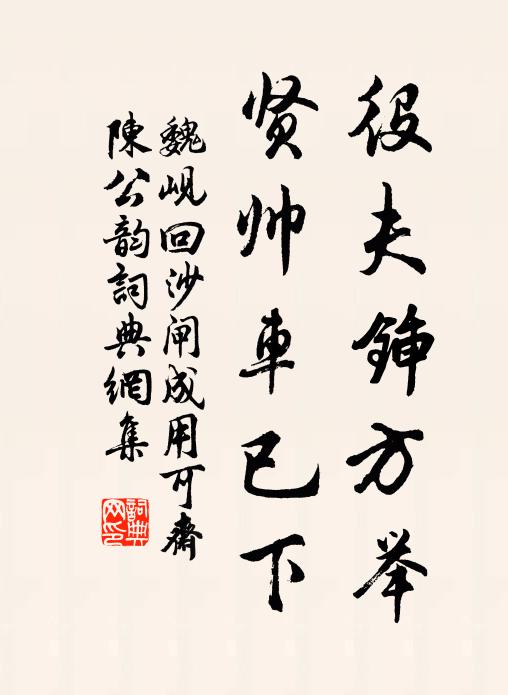 役夫锸方举
贤帅車已下
魏岘回沙闸成用可齋
陳公韵詞典網集
詞典网印